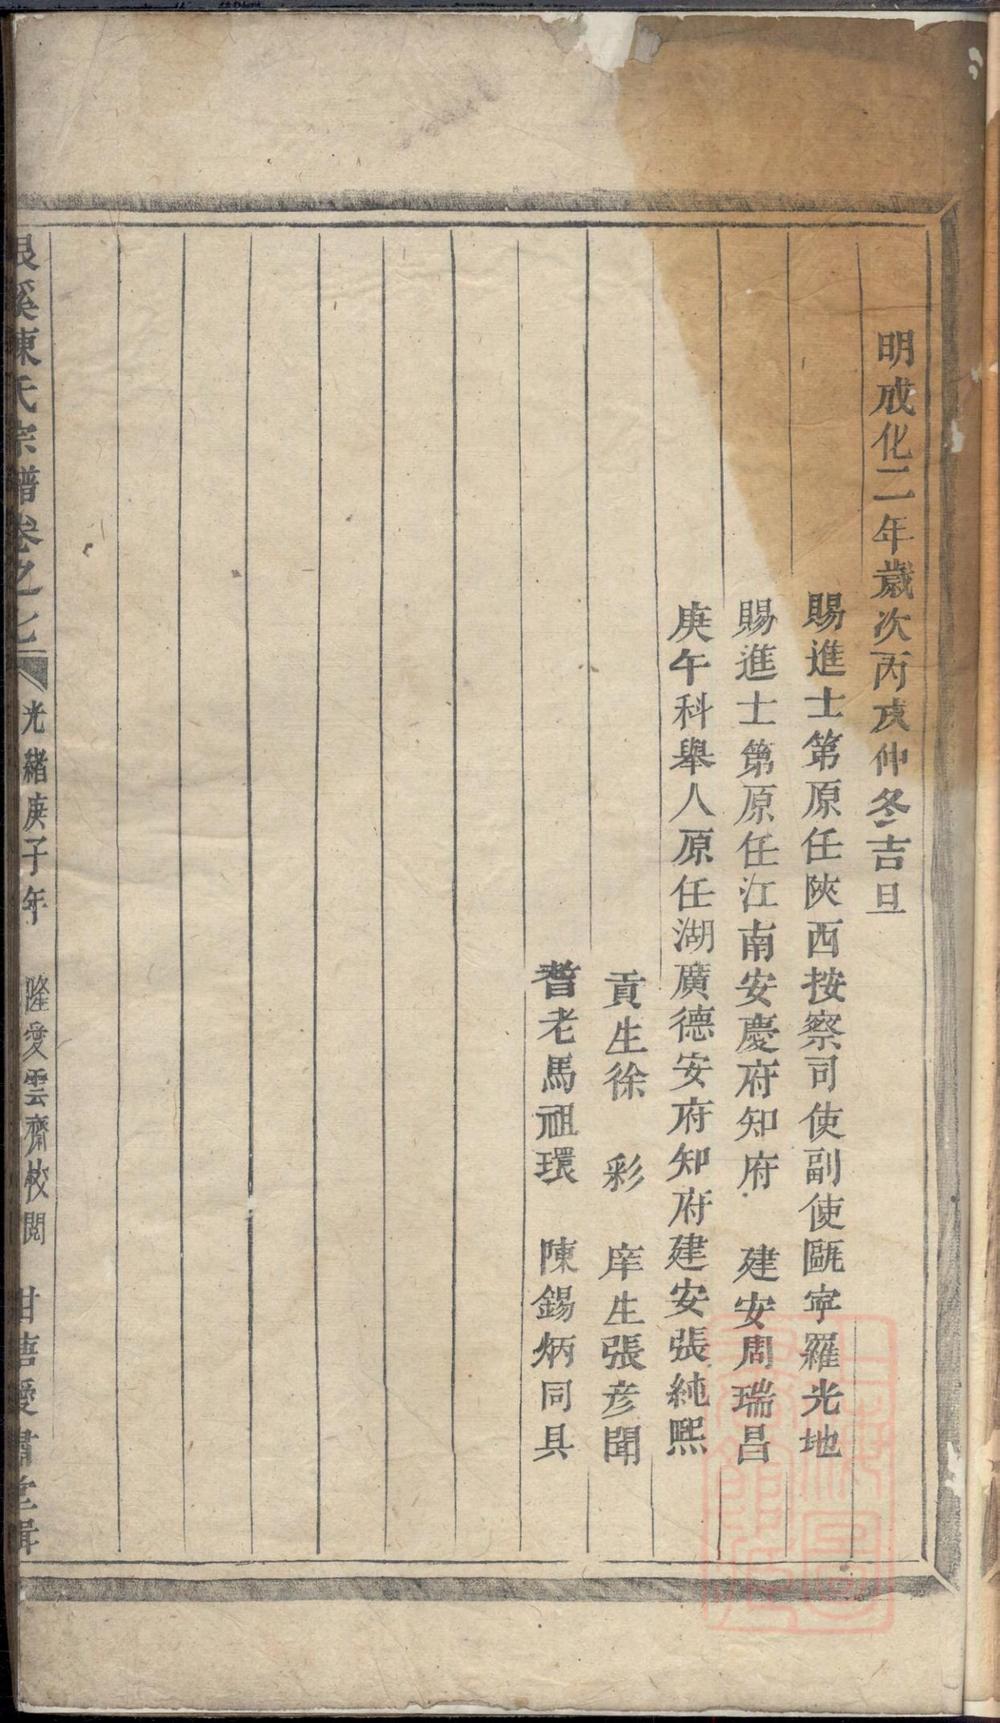 明成化二年歲次丙戌仲冬吉旦
賜進士第原任陝西按察司使副使甌寧羅光地
賜進士第原任江南安慶府知府 建安周瑞昌
庚午科舉人原任湖廣德安府知府建安張純熙
貢生徐 彩 庠生張彥聞
耆老馬祖環 陳錫炳同具
溪陳氏宗譜卷之七 光緒庚子年 隆愛雲齋校閱 甘棠愛